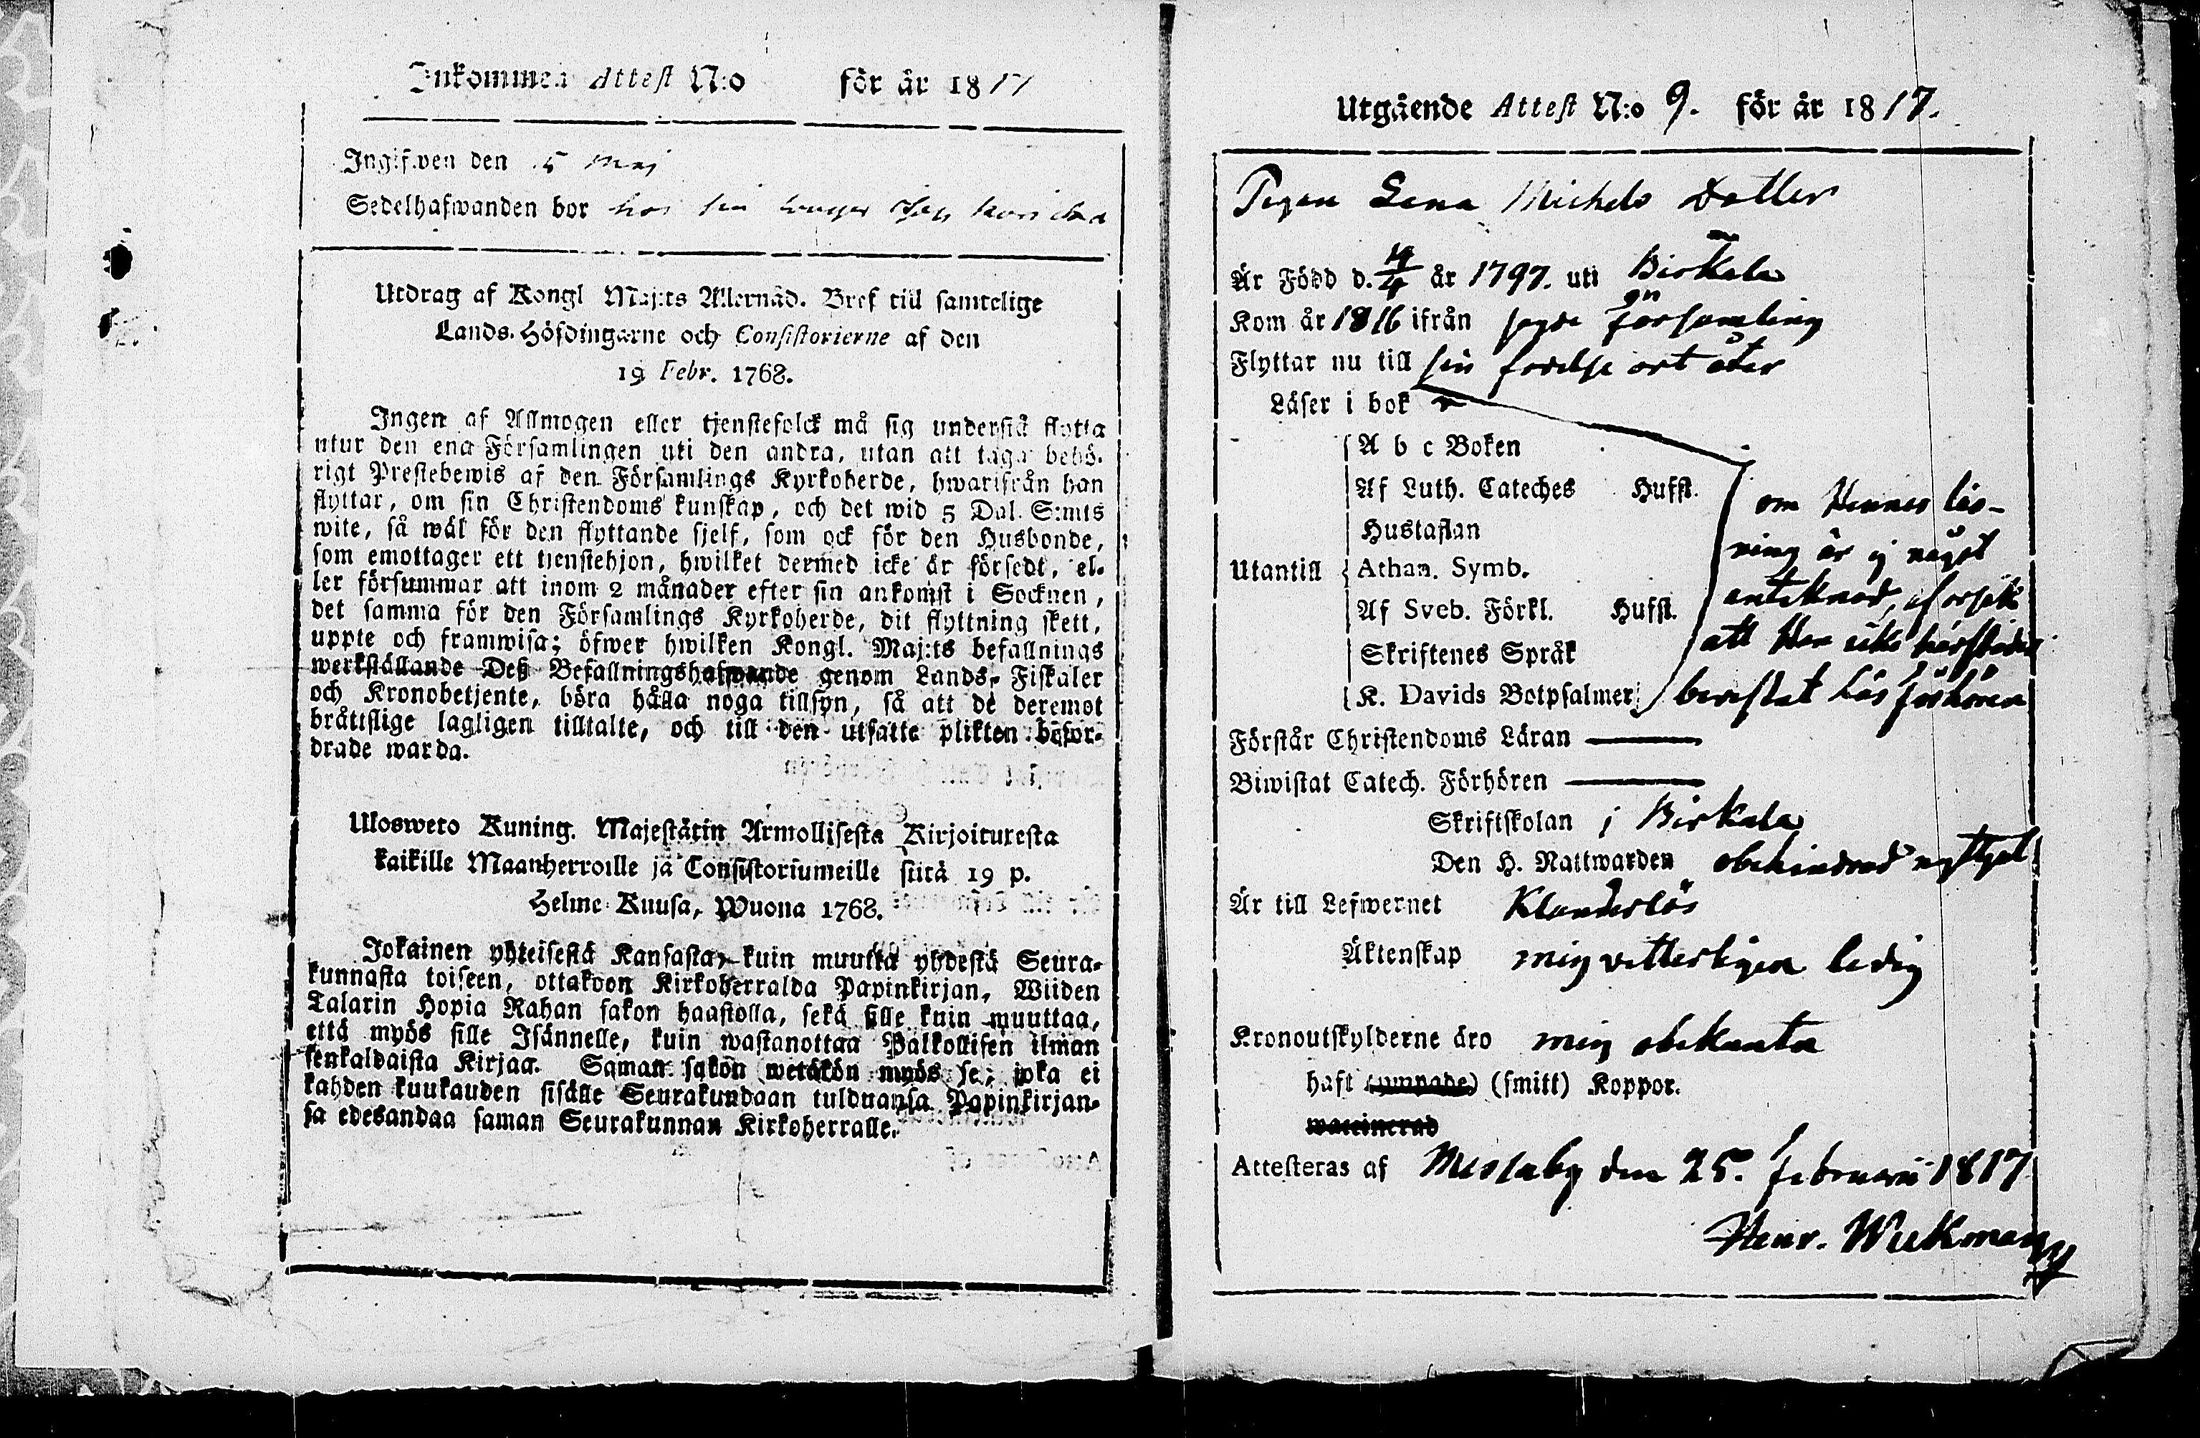 Inkommen Attest N:o för år 1817
Ingifwen den 5 Maj
Sedelhafwanden bor hos sin
Utdrag af Kongl Maj:ts Allernåd. Bref till samtelige
Lands-Höfdingarne och Consistorierne af den
19 Febr. 1768.
Ingen af Allmogen eller tjenstefolck må sig understå flytta
utur den ena Församlingen uti den andra, utan att taga behö-
rigt Prestebewis af den Församlings Kyrkoherde, hwarifrån han
flyttar, om sin Christendoms kunskap, och det wid 5 Dal. S:mts
wite, så wäl för den flyttande sjelf, som ock för den Husbonde,
som emottager ett tjenstehjon, hwilket dermed icke är försedt, el-
ler försummar att inom 2 månader efter sin ankomst i Socknen,
det samma för den Församlings Kyrkoherde, dit flyttning skett,
uppte och framwisa; öfwer hwilken Kongl. Maj:ts befallnings
werkställande Deß Befallningshafwande genom Lands-Fiskaler
och Kronobetjente, böra hålla noga tillsyn, så att de deremot
bråttslige lagligen tilltalte, och till den utsatte plikten befor-
drade warda.
Ulosweto Kuning. Majestätin Armollisesta Kirjoituresta
kaikille Maanherroille ja Consistoriumeille siitä 19 p.
Helme-Kuusa, Wuona 1768.
Jokainen yhteisestä Kansasta, kuin muutta yhdestä Seura-
kunnasta toiseen, ottakoon Kirkoherralda Papinkirjan, Wiiden
Talarin Hopia Rahan sakon haastolla, sekä sille kuin muuttaa,
että myös sille Isännelle, kuin wastanottaa Palkollisen ilman
senkaldaista Kirjaa. Saman sakon wetäkön myös se, joka ei
kahden kuukauden sisälle Seurakundaan tulduansa Papinkirjan-
sa edesandaa saman Seurakunnan Kirkoherralle.
Utgående Attest N:o 9. för år 1817.
Pigan Lena Michels Dotter
Är Född d. 4/4 år 1797. uti Birkala
Kom år 1816 ifrån sagde församling
Flyttar nu till sin födelse ort åter
Läser i bok
A b c Boken
Af Luth. Cateches Hufst.
om Hennes läs-
Hustaflan
ning är ej något
Utantill Athan. Symb.
anteknad,
Af Sveb. Förkl. Hufst.
att Hon icke härstädes
Skriftenes Språk
K. Davids Botpsalmer
bevistat Läs förhören
Förstår Christendoms Läran
Biwistat Catech. Förhören
Skriftskolan i Birkala
Den H. Nattwarden obehindrad nyttjat
Är till Lefwernet Klanderlös
Äktenskap mig vetterligen ledig
Kronoutskylderne äro mig obekanta
haft (ympade) (smitt) Koppor.
waccinerad
Attesteras af Messuby den 25. februari 1817
Henr. Wickman